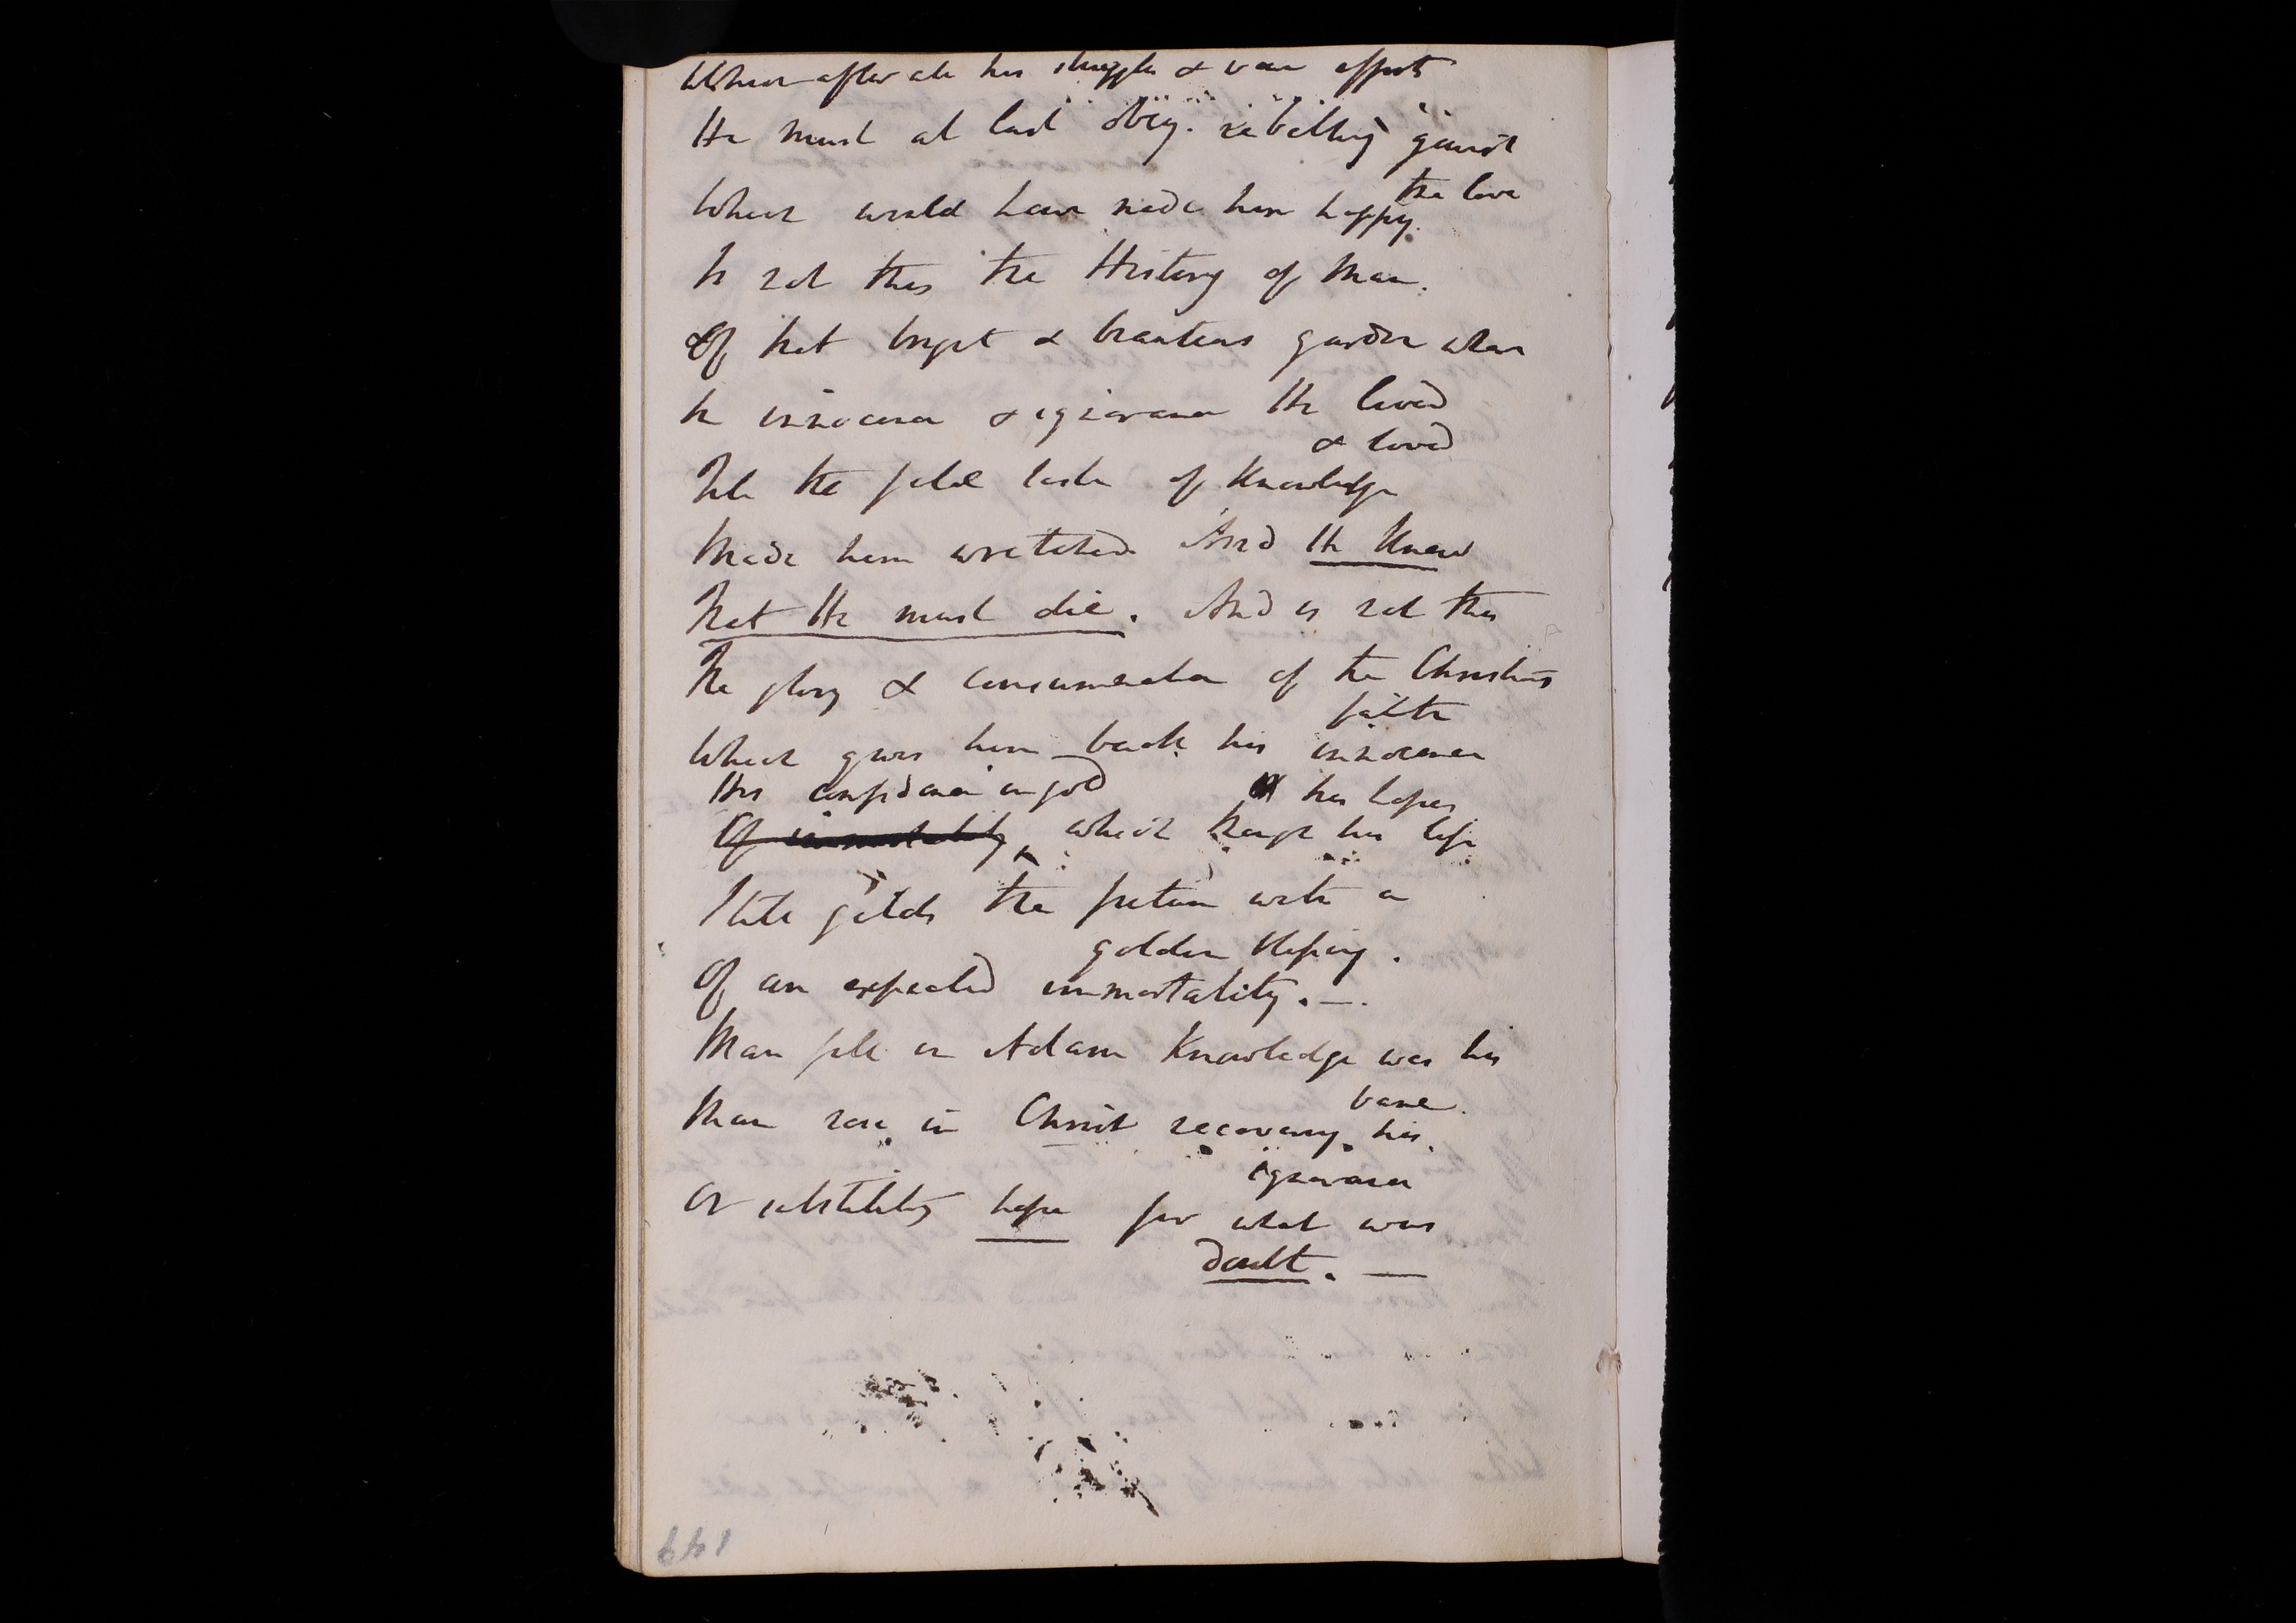 Which after all his struggles & vain efforts
He must at last obey. rebelling 'gainst
the love
Which would have made him happy.
Is not this the History of Man.
Of that bright & beauteous garden where
In innocence & ignorance He lived
& loved
Till the fatal taste of Knowledge
Made him wretched And He Knew
That He must die. And is not this
The glory & consummation of the Christians
faith
Which gives him back his innocence
His confidence in god his hopes
Of immortality which though his life
Still gilds the future with a
golden Hoping.
Of an expected immortality. —.
Man fell in Adam Knowledge was his
bane.
Man rose in Christ recovering his
ignorance
Or substituting hope for what was
doubt. —
149